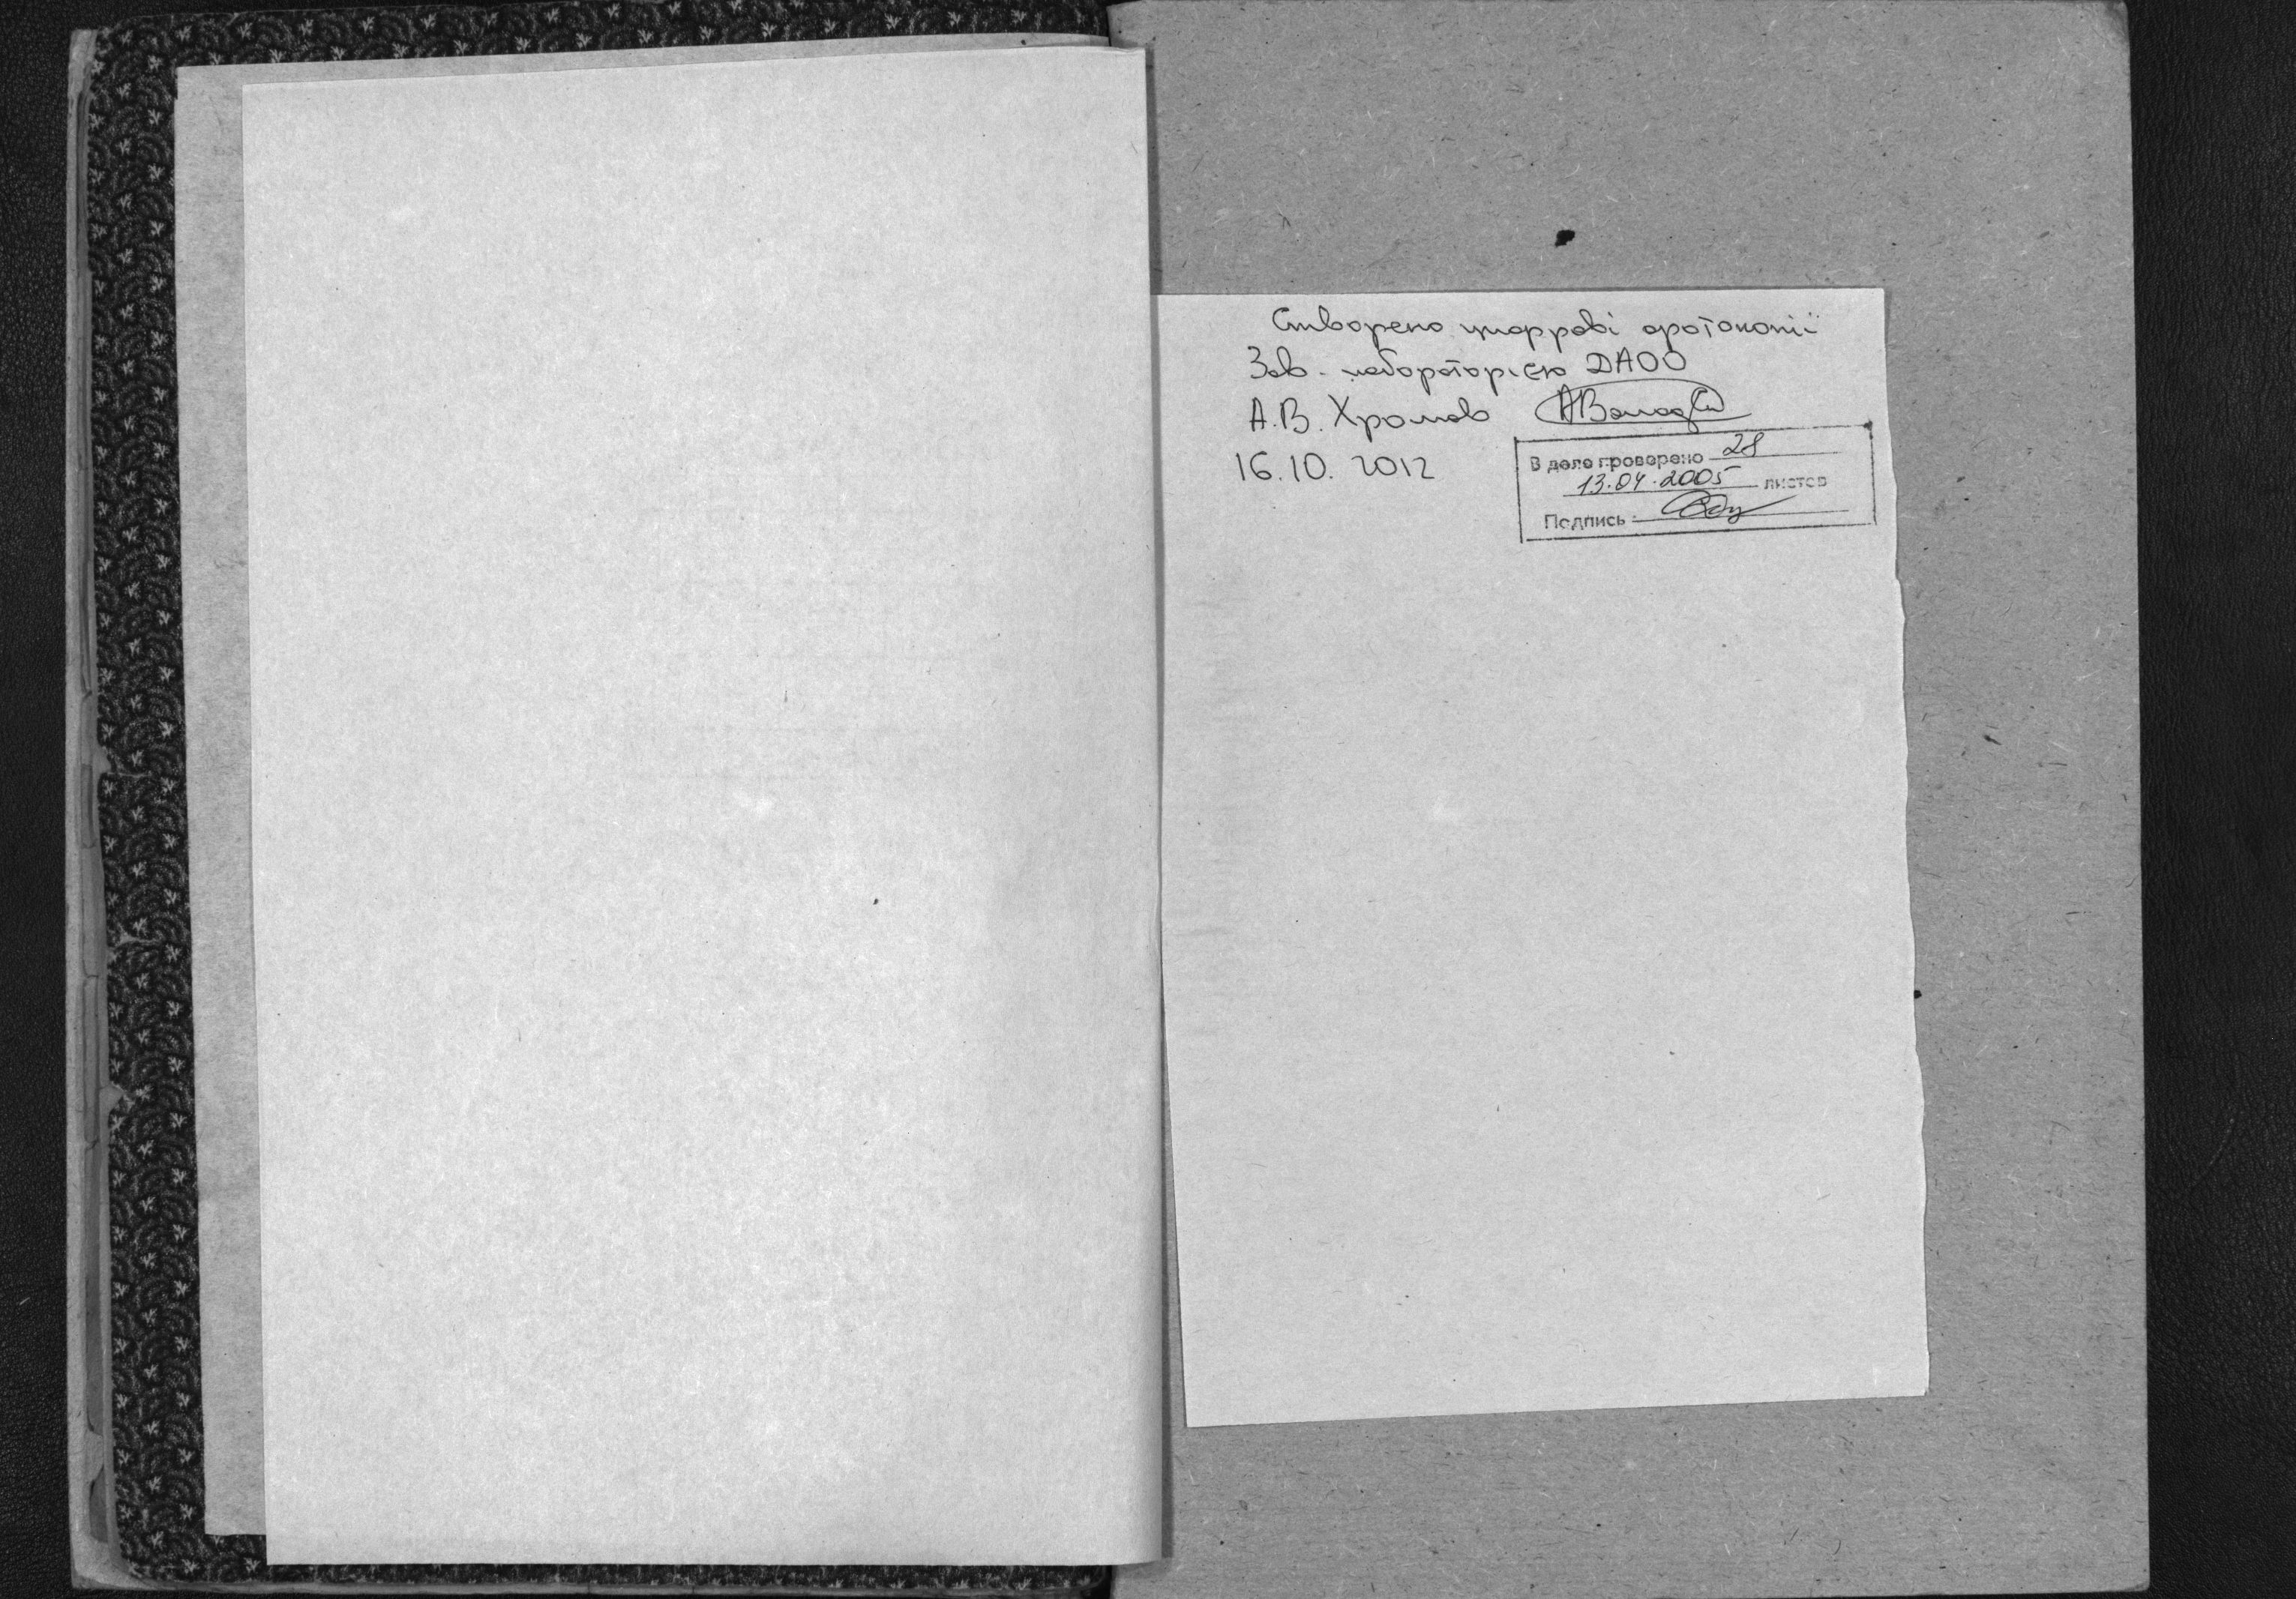 Створено цифрові фотокопії
Зав. лабораторією ДАОО
А.В. Хромов
16.10.2012
В деле проверено 28
13.04.2005 листов
Подпись